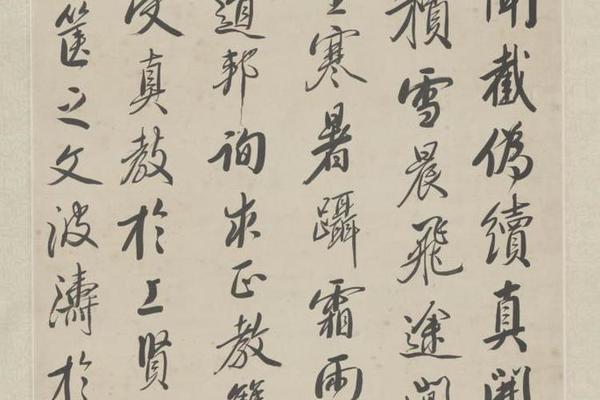 聞截偽續真開
積雪晨飛途間
寒暑躡霜雨
道邦詢求正教
受真教於上賢
篋之文波濤於